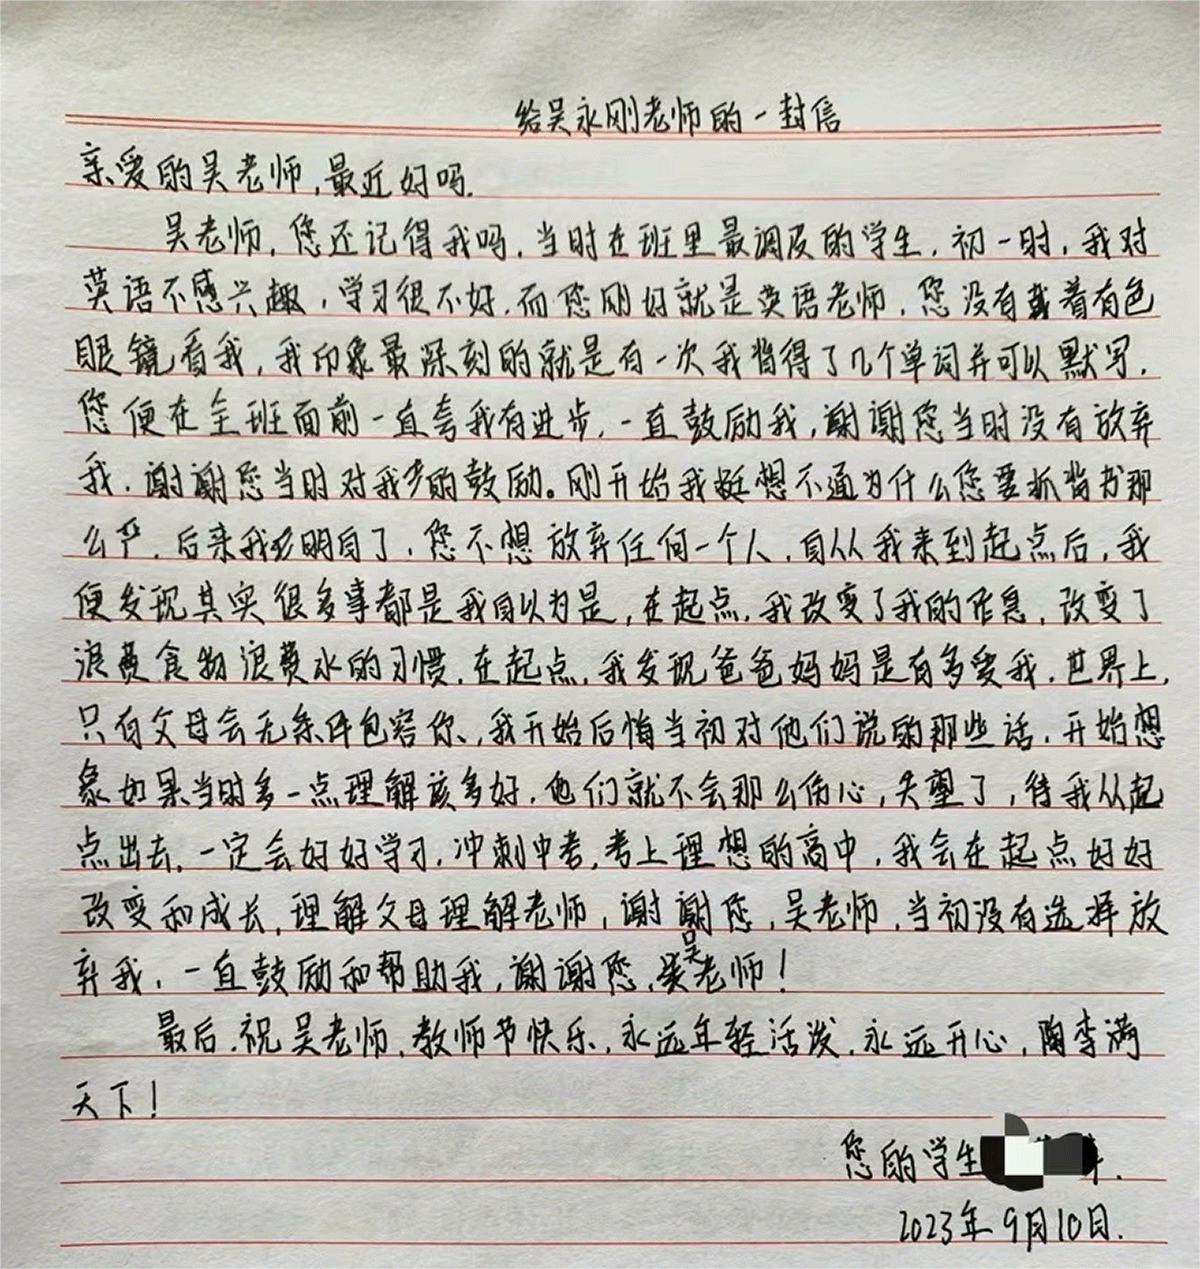 给吴永刚老师的一封信
亲爱的吴老师,最近好吗.
吴老师,您还记得我吗,当时在班里最调皮的学生,初一时,我对
英语不感兴趣,学习很不好,而您刚好就是英语老师,您没有戴着有色
眼镜看我,我印象最深刻的就是有一次我背得了几个单词并可以默写,
您便在全班面前一直夸我有进步,一直鼓励我,谢谢您当时没有放弃
我,谢谢您当时对我的鼓励。刚开始我挺想不通为什么您要抓背书那
么严,后来我明白了,您不想放弃任何一个人,自从我来到起点后,我
便发现其实很多事都是我自以为是,在起点,我改变了我的作息,改变了
浪费食物浪费水的习惯,在起点,我发现爸爸妈妈是有多爱我,世界上,
只有父母会无条件包容你,我开始后悔当初对他们说的那些话,开始想
象如果当时多一点理解该多好,他们就不会那么伤心,失望了,待我从起
点出去,一定会好好学习,冲刺中考,考上理想的高中,我会在起点好好
改变和成长,理解父母理解老师,谢谢您,吴老师,当初没有选择放
弃我,一直鼓励和帮助我,谢谢您,吴老师!
最后,祝吴老师,教师节快乐,永远年轻活泼,永远开心,陶李满
天下!
您的学生
2023年9月10日.